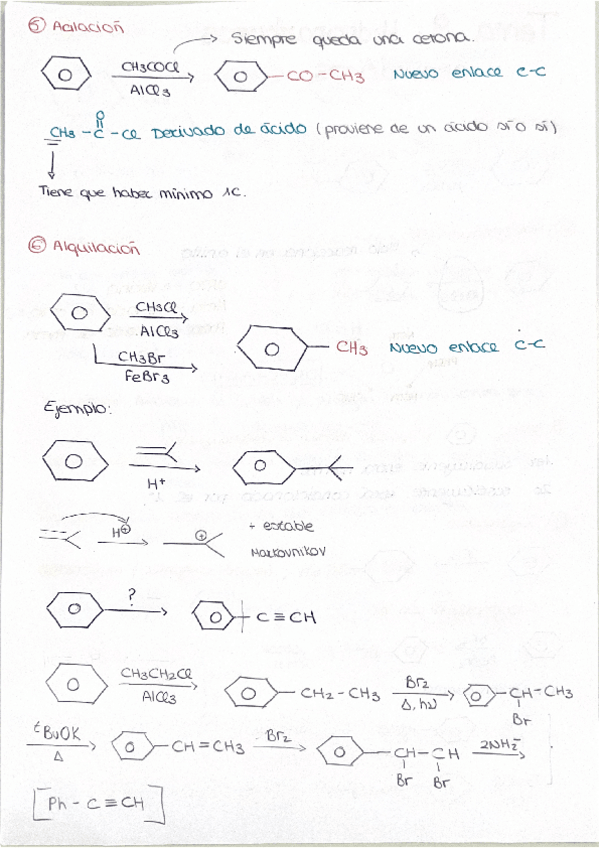 ⑤ Acilación
→ Siempre queda una cetona.
CH3COCl
AlCl3
CO-CH3 Nuevo enlace C-C
O
CH3 - C - Cl Derivado de ácido (proviene de un ácido sí o sí)
Tiene que haber mínimo 1C.
⑥ Alquilación
CH3Cl
AlCl3
CH3Br
FeBr3
CH3 Nuevo enlace C-C
Ejemplo:
H+
H⊕
⊕
+ estable
Markovnikov
?
C≡CH
CH3CH2Cl
AlCl3
CH2-CH3
Br2
Δ, hν
CH-CH3
Br
tBuOK
Δ
CH=CH3
Br2
CH-CH
Br Br
2NH2-
[Ph-C≡CH]